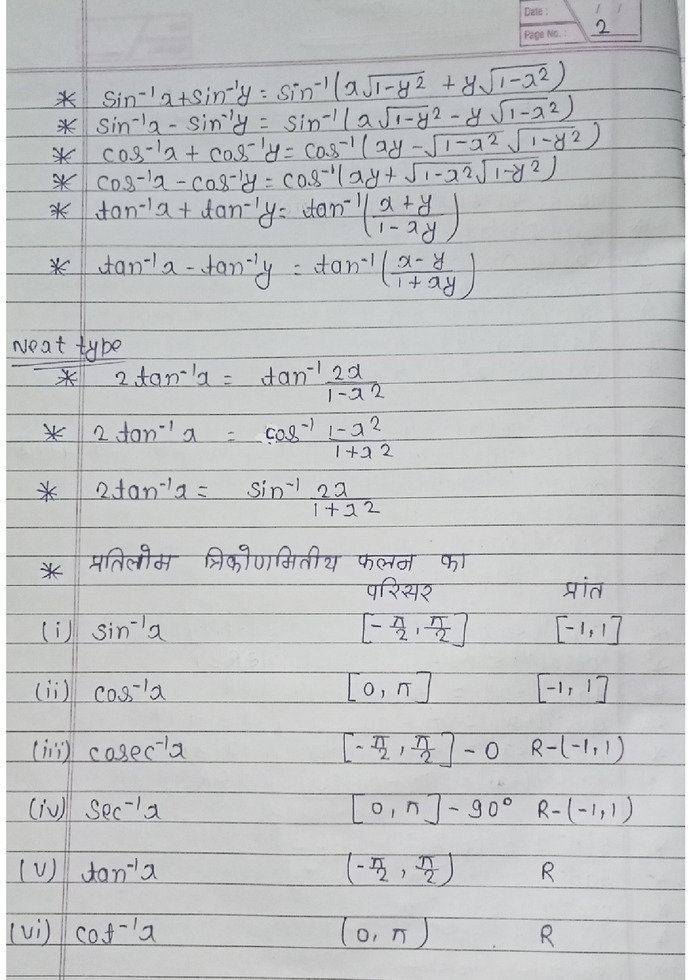 Date : / /
Page No. : 2
* sin⁻¹x + sin⁻¹y = sin⁻¹(x√1-y² + y√1-x²)
* sin⁻¹x - sin⁻¹y = sin⁻¹(x√1-y² - y√1-x²)
* cos⁻¹x + cos⁻¹y = cos⁻¹(xy - √1-x² √1-y²)
* cos⁻¹x - cos⁻¹y = cos⁻¹(xy + √1-x² √1-y²)
* tan⁻¹x + tan⁻¹y = tan⁻¹(x+y / 1-xy)
* tan⁻¹x - tan⁻¹y = tan⁻¹(x-y / 1+xy)
Next type
* 2tan⁻¹x = tan⁻¹ 2x / 1-x²
* 2tan⁻¹x = cos⁻¹ 1-x² / 1+x²
* 2tan⁻¹x = sin⁻¹ 2x / 1+x²
* प्रतिलोम त्रिकोणमितीय फलन का
परिसर प्रांत
(i) sin⁻¹x [-π/2, π/2] [-1, 1]
(ii) cos⁻¹x [0, π] [-1, 1]
(iii) cosec⁻¹x [-π/2, π/2] - 0 R-(-1,1)
(iv) sec⁻¹x [0, π] - 90° R-(-1,1)
(v) tan⁻¹x (-π/2, π/2) R
(vi) cot⁻¹x (0, π) R